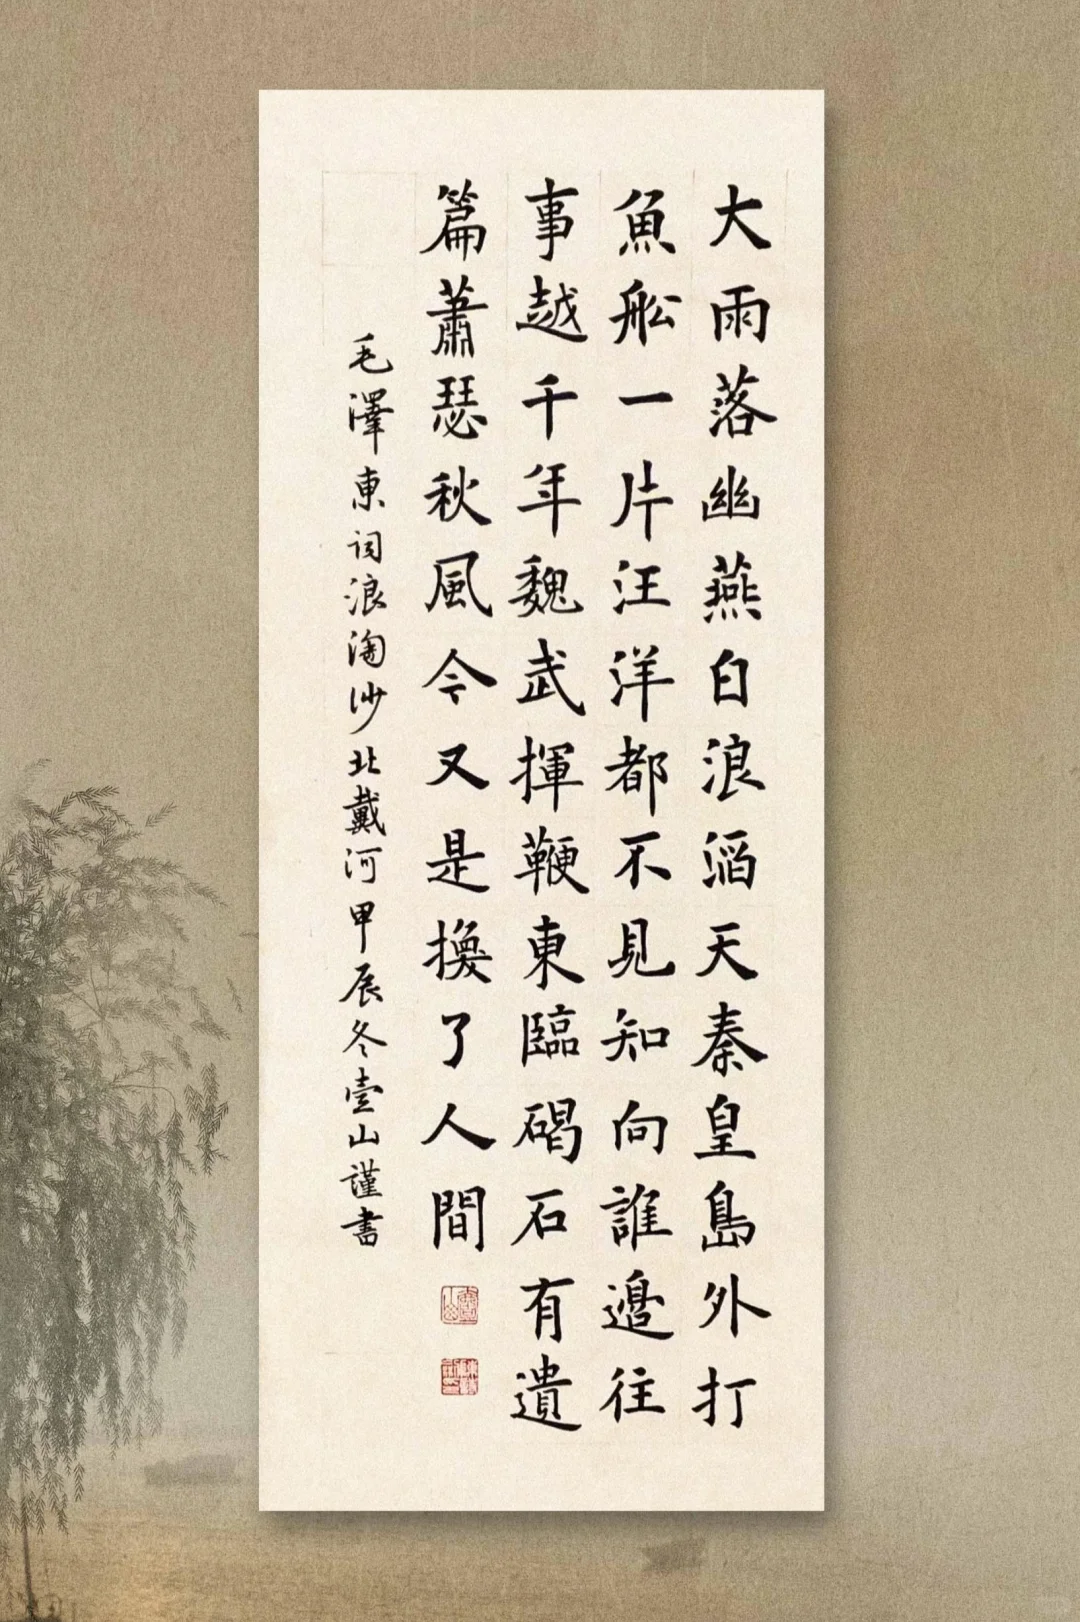 大雨落幽燕白浪滔天秦皇島外打
魚舩一片汪洋都不見知向誰邊往
事越千年魏武揮鞭東臨碣石有遺
篇蕭瑟秋風今又是換了人間
毛澤東詞浪淘沙北戴河甲辰冬壹山謹書